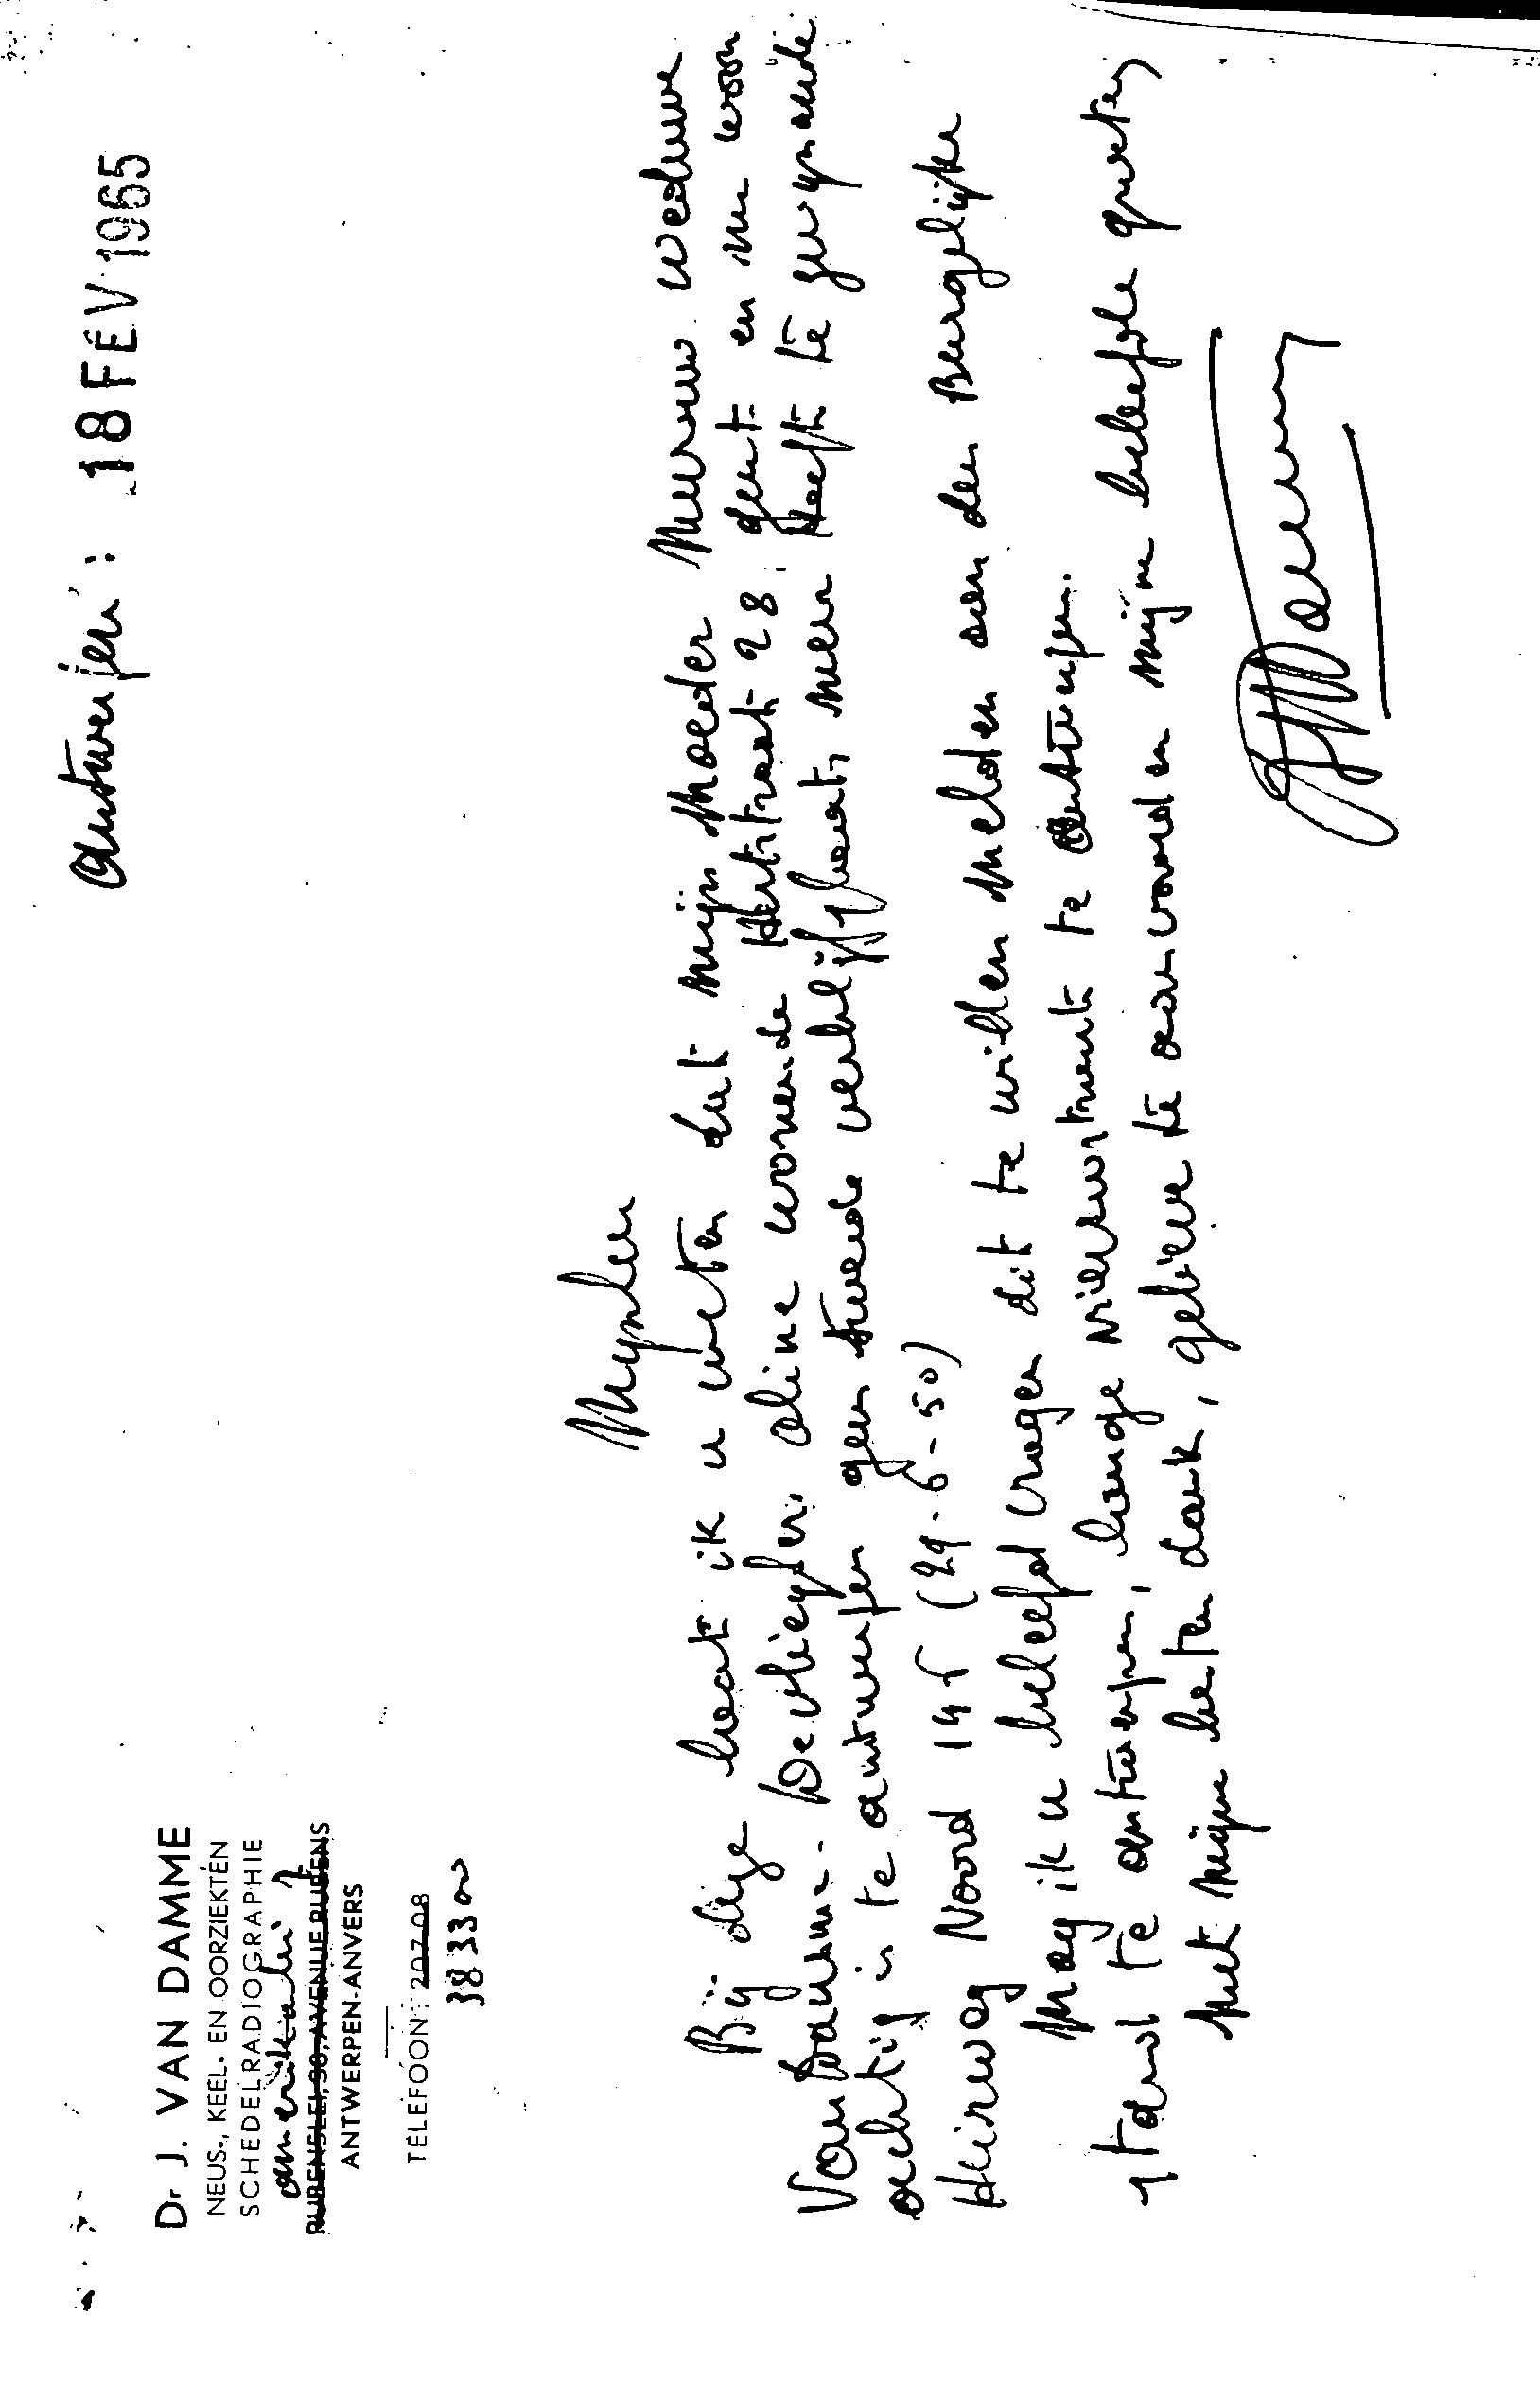 Dr J. VAN DAMME
NEUS-, KEEL- EN OORZIEKTEN
SCHEDELRADIOGRAPHIE
amerikalei 7
RUBENSLEI, 30, AVENUE RUBENS
ANTWERPEN-ANVERS
TELEFOON: 207.08
38 33 00
Antwerpen: 18 FEV 1965
Mynheer
Bij deze laat ik u weten dat mijn moeder Mevrouw weduwe
Van Damme - Devliegher, aline wonende Hertstraat 28 gent en nu woon
achtig is te antwerpen geen tweede verblijfplaats meer heeft te
Heirweg Noord 145 (29-6-50)
Mag ik u beleefd vragen dit te willen melden aan den Burgelijke
stand te antwerpen, lange nieuwstraat te antwerpen.
Met mijne besten dank, gelieve te aanvaarden mijne beleefde groeten